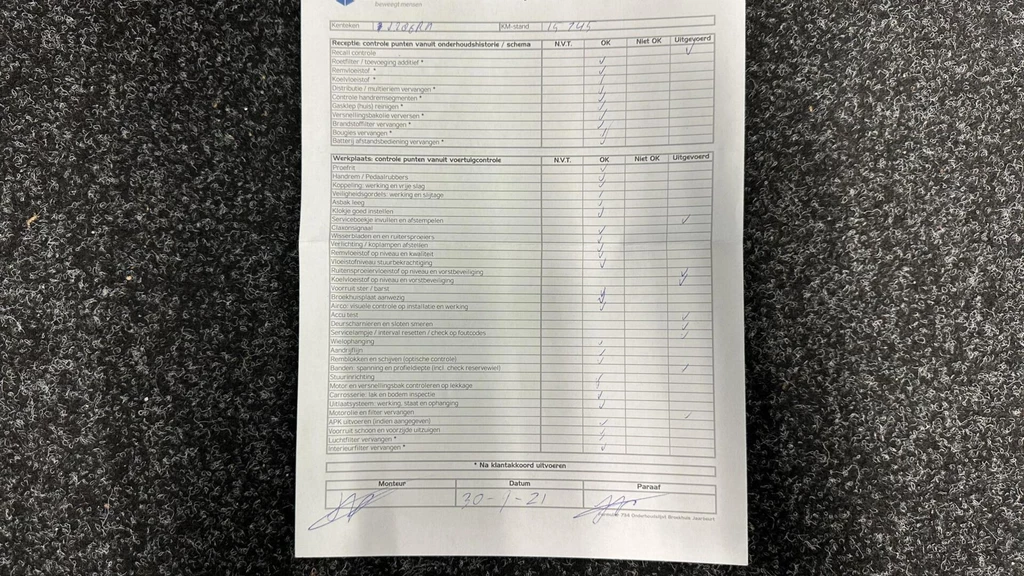 beweegt mensen
Kenteken KM-stand 15 745
Receptie: controle punten vanuit onderhoudshistorie / schema N.V.T. OK Niet OK Uitgevoerd
Recall controle
Roetfilter / toevoeging additief *
Remvloeistof *
Koelvloeistof *
Distributie / multieriem vervangen *
Controle handremsegmenten *
Gasklep (huis) reinigen *
Versnellingsbakolie verversen *
Brandstoffilter vervangen *
Bougies vervangen *
Batterij afstandsbediening vervangen *
Werkplaats: controle punten vanuit voertuigcontrole N.V.T. OK Niet OK Uitgevoerd
Proefrit
Handrem / Pedaalrubbers
Koppeling: werking en vrije slag
Veiligheidsgordels: werking en slijtage
Asbak leeg
Klokje goed instellen
Serviceboekje invullen en afstempelen
Claxonsignaal
Wisserbladen en en ruitersproeiers
Verlichting / koplampen afstellen
Remvloeistof op niveau en kwaliteit
Vloeistofniveau stuurbekrachtiging
Ruitensproeiervloeistof op niveau en vorstbeveiliging
Koelvloeistof op niveau en vorstbeveiliging
Voorruit ster / barst
Broekhuisplaat aanwezig
Airco: visuele controle op installatie en werking
Accu test
Deurscharnieren en sloten smeren
Servicelampje / interval resetten / check op foutcodes
Wielophanging
Aandrijflijn
Remblokken en schijven (optische controle)
Banden: spanning en profieldiepte (incl. check reservewiel)
Stuurinrichting
Motor en versnellingsbak controleren op lekkage
Carrosserie: lak en bodem inspectie
Uitlaatsysteem: werking, staat en ophanging
Motorolie en filter vervangen
APK uitvoeren (indien aangegeven)
Voorruit schoon en voorzijde uitzuigen
Luchtfilter vervangen *
Interieurfilter vervangen *
* Na klantakkoord uitvoeren
Monteur Datum Paraaf
30-1-21